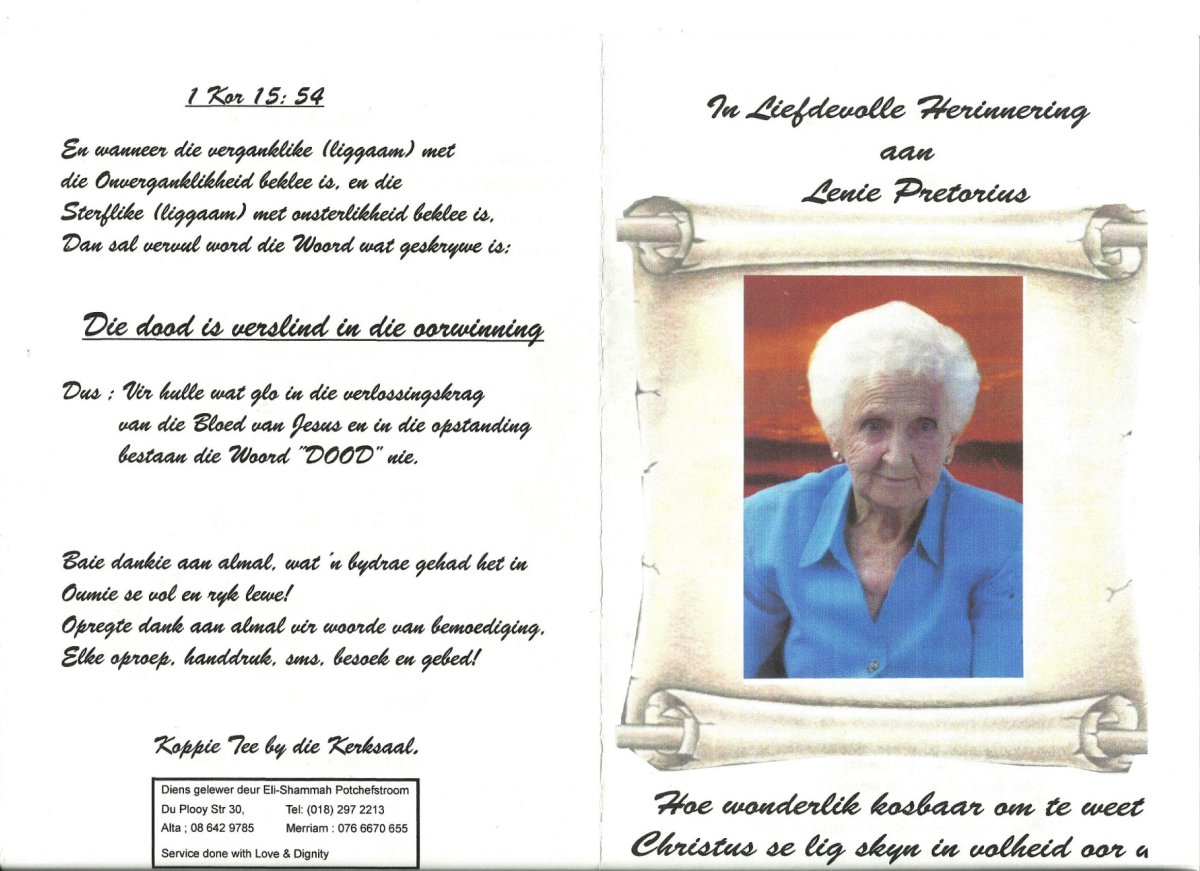 1 Kor 15: 54
En wanneer die verganklike (liggaam) met
die Onverganklikheid beklee is, en die
Sterflike (liggaam) met onsterlikheid beklee is,
Dan sal vervul word die Woord wat geskrywe is:
Die dood is verslind in die oorwinning
Dus ; Vir hulle wat glo in die verlossingskrag
van die Bloed van Jesus en in die opstanding
bestaan die Woord "DOOD" nie.
Baie dankie aan almal, wat 'n bydrae gehad het in
Oumie se vol en ryk lewe!
Opregte dank aan almal vir woorde van bemoediging,
Elke oproep, handdruk, sms, besoek en gebed!
Koppie Tee by die Kerksaal.
Diens gelewer deur Eli-Shammah Potchefstroom
Du Plooy Str 30, Tel: (018) 297 2213
Alta ; 08 642 9785 Merriam : 076 6670 655
Service done with Love & Dignity
In Liefdevolle Herinnering
aan
Lenie Pretorius
Hoe wonderlik kosbaar om te weet
Christus se lig skyn in volheid oor